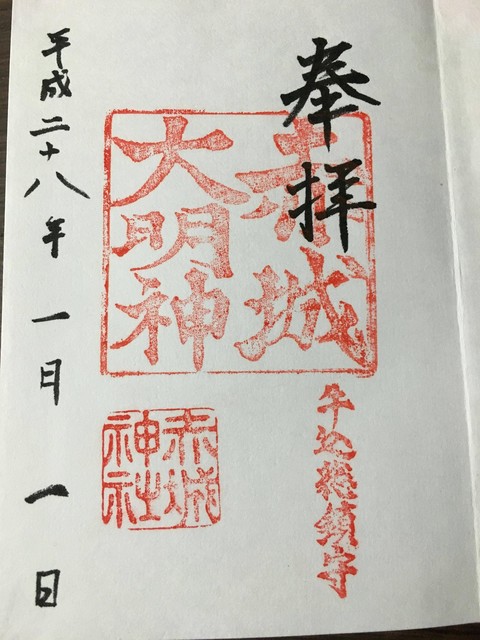 奉拝
赤城
大明神
牛込総鎮守
赤城
神社
平成二十八年一月一日